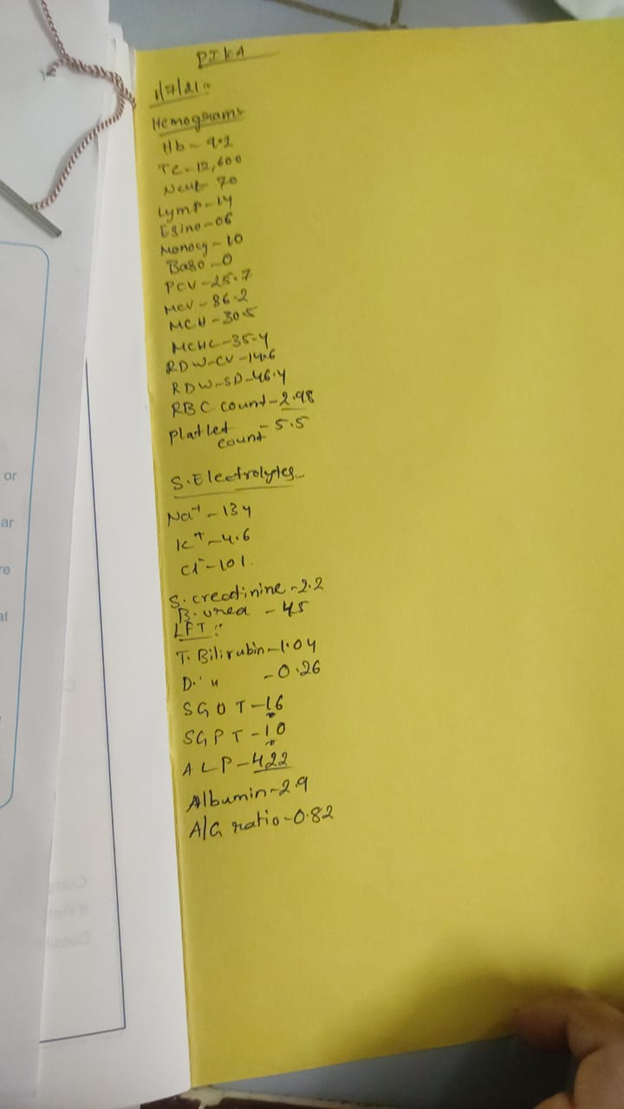 1/7/21:
Hemogram:
Hb - 9.2
TC - 12,600
Neut - 70
Lymp - 14
Esino - 06
Monocy - 10
Baso - 0
PCV - 25.7
MCV - 86.2
MCH - 30.5
MCHC - 35.4
RDW-CV - 14.6
RDW-SD - 46.4
RBC count - 2.98
Platlet count - 5.5
S. Electrolytes
Na+ - 134
K+ - 4.6
Cl- - 101
S. creatinine - 2.2
B. urea - 45
LFT:
T. Bilirubin - 1.04
D. " - 0.26
SGOT - 16
SGPT - 10
ALP - 422
Albumin - 2.9
A/G ratio - 0.82
or
ar
re
at